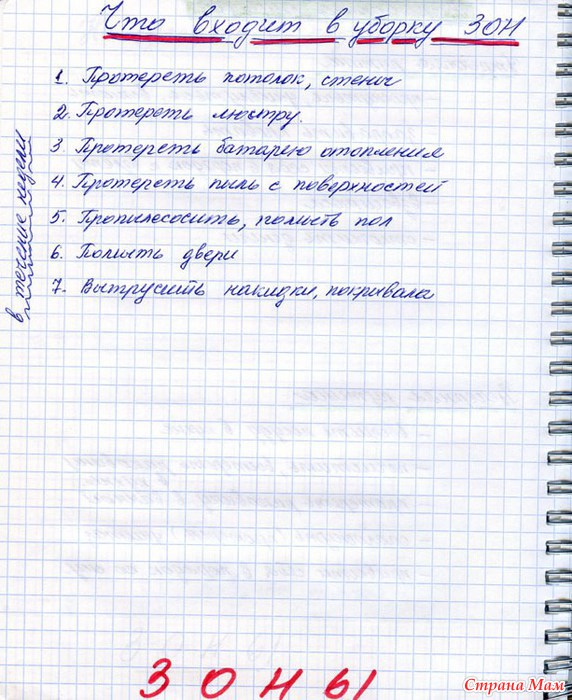 Что входит в уборку ЗОН
1. Протереть потолок, стены
2. Протереть люстру.
3 Протереть батарею отопления
4. Протереть пыль с поверхностей
5. Пропылесосить, помыть пол
6. Помыть двери
7. Вытрусить накидки, покрывала
в течение недели
ЗОНЫ
Страна Мам